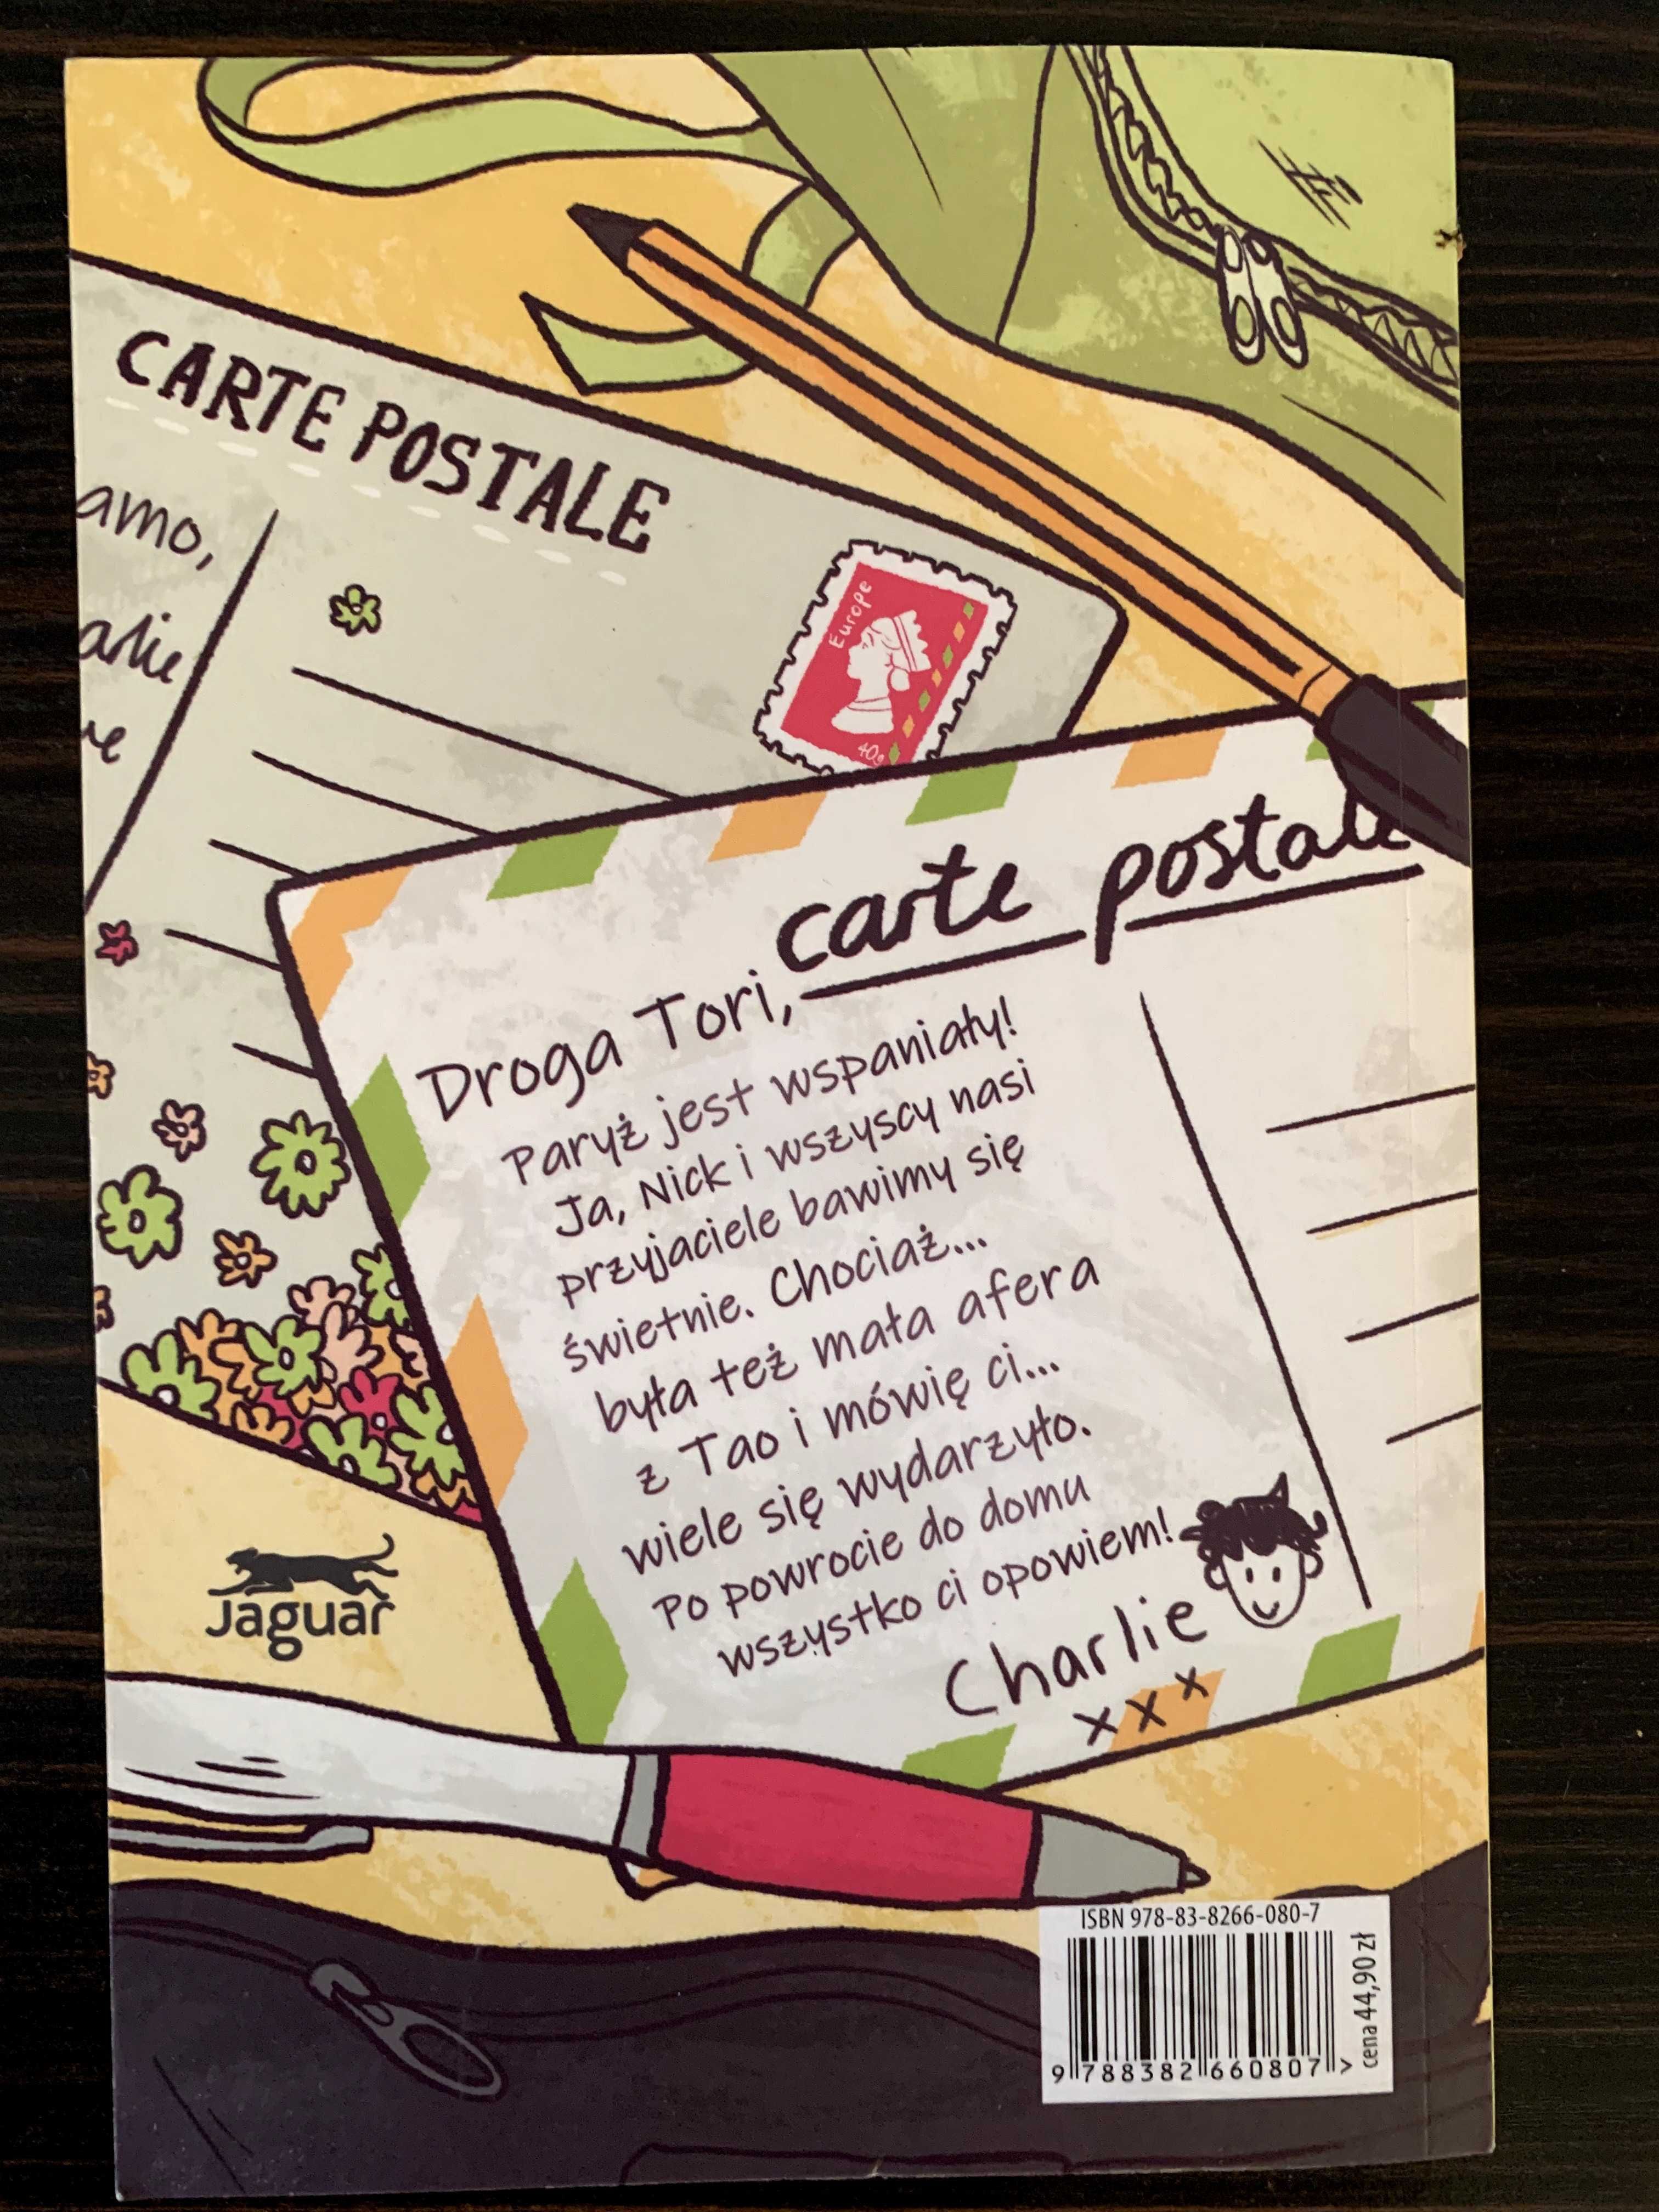 CARTE POSTALE
amo,
Europe
carte postale
Droga Tori,
Paryż jest wspaniały!
Ja, Nick i wszyscy nasi
przyjaciele bawimy się
świetnie. Chociaż...
była też mała afera
z Tao i mówię ci...
wiele się wydarzyło.
Po powrocie do domu
wszystko ci opowiem!
Charlie
x x x
Jaguar
ISBN 978-83-8266-080-7
9 788382 660807 >
cena 44,90 zł